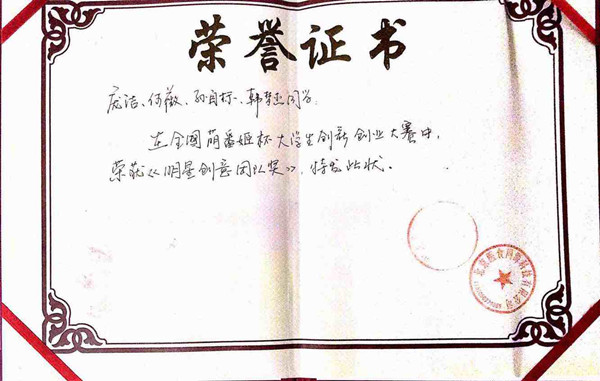 荣誉证书
庞洁、何薇、孙自标、韩梦杰同学
在全国萌番姬杯大学生创新创业大赛中，
荣获《明星创意团队奖》，特发此状.